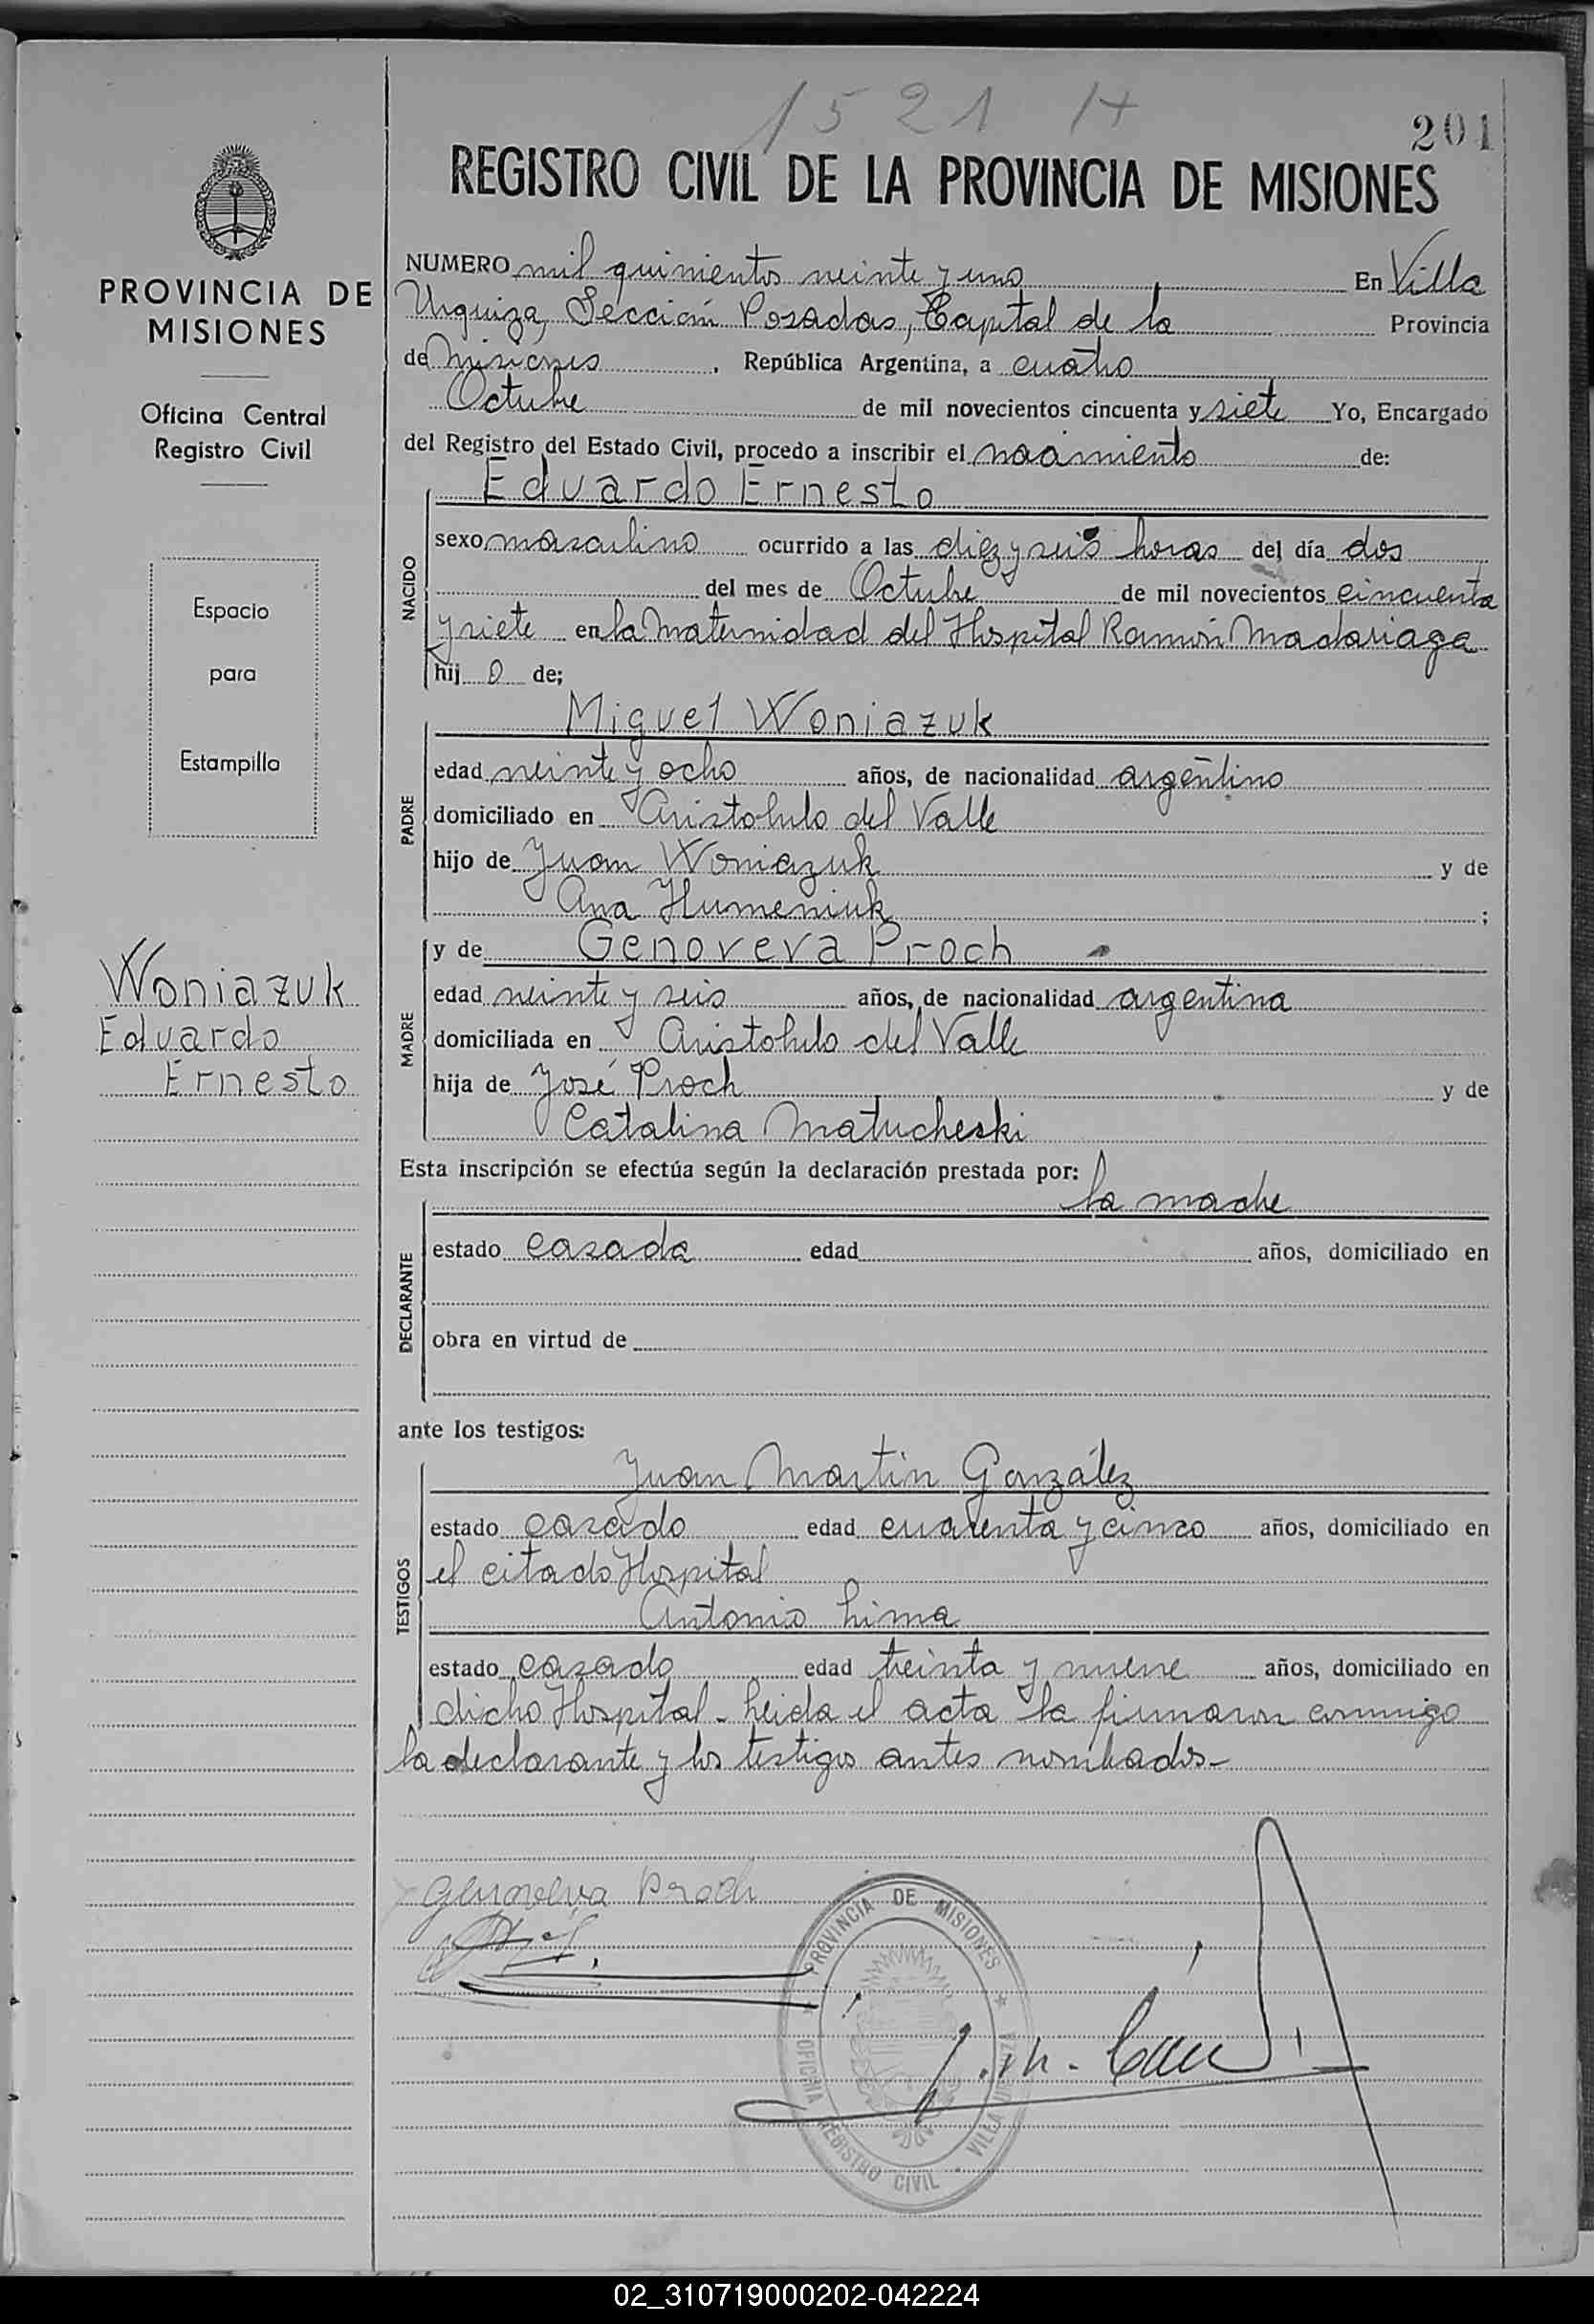 1521 H
201
REGISTRO CIVIL DE LA PROVINCIA DE MISIONES
PROVINCIA DE
MISIONES
Oficina Central
Registro Civil
Espacio
para
Estampilla
Woniazuk
Eduardo
Ernesto
NUMERO mil quinientos veinte y uno En Villa
Urquiza, Sección Posadas, Capital de la Provincia
de Misiones, República Argentina, a cuatro
Octubre de mil novecientos cincuenta y siete Yo, Encargado
del Registro del Estado Civil, procedo a inscribir el nacimiento de:
Eduardo Ernesto
NACIDO
sexo masculino ocurrido a las diez y seis horas del día dos
del mes de Octubre de mil novecientos cincuenta
y siete en la Maternidad del Hospital Ramón Madariaga
hij o de;
Miguel Woniazuk
PADRE
edad veinte y ocho años, de nacionalidad argentino
domiciliado en Aristobulo del Valle
hijo de Juan Woniazuk y de
Ana Humeniuk ;
y de Genoveva Proch
MADRE
edad veinte y seis años, de nacionalidad argentina
domiciliada en Aristobulo del Valle
hija de José Proch y de
Catalina Matucheski
Esta inscripción se efectúa según la declaración prestada por:
la madre
DECLARANTE
estado casada edad años, domiciliado en
obra en virtud de
ante los testigos:
Juan Martin González
TESTIGOS
estado casado edad cuarenta y cinco años, domiciliado en
el citado Hospital
Antonio Lima
estado casado edad treinta y nueve años, domiciliado en
dicho Hospital - Leida el acta la firmaron conmigo
la declarante y los testigos antes nombrados-
Genoveva Proch
PROVINCIA DE MISIONES
OFICINA REGISTRO CIVIL VILLA URQUIZA
02_310719000202-042224